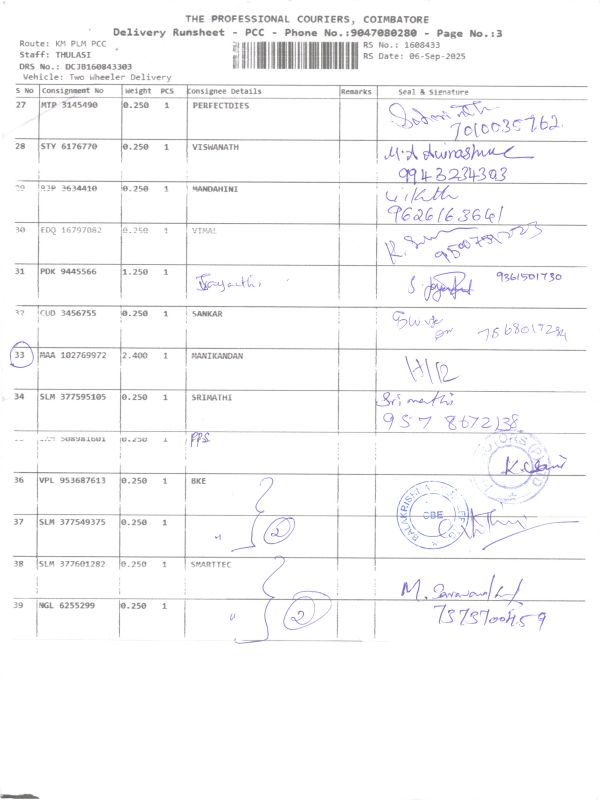 THE PROFESSIONAL COURIERS, COIMBATORE
Delivery Runsheet - PCC - Phone No.:9047080280 - Page No.:3
Route: KM PLM PCC RS No.: 1608433
Staff: THULASI RS Date: 06-Sep-2025
DRS No.: DCJB160843303
Vehicle: Two Wheeler Delivery
S No Consignment No Weight PCS Consignee Details Remarks Seal & Signature
27 MTP 3145490 0.250 1 PERFECTDIES
7010035762
28 STY 6176770 0.250 1 VISWANATH
9943234303
29 RJP 3634410 0.250 1 MANDAHINI
9626163641
30 EDQ 16797082 0.250 1 VIMAL
31 PDK 9445566 1.250 1 Jayanthi 9361501730
32 CUD 3456755 0.250 1 SANKAR
33 MAA 102769972 2.400 1 MANIKANDAN H/R
34 SLM 377595105 0.250 1 SRIMATHI Srimathi
957 8672138
508981601 0.250 1 PPS
36 VPL 953687613 0.250 1 BKE
BALAKRISHNA CBE
37 SLM 377549375 0.250 1 " 2
38 SLM 377601282 0.250 1 SMARTTEC
39 NGL 6255299 0.250 1 " 2